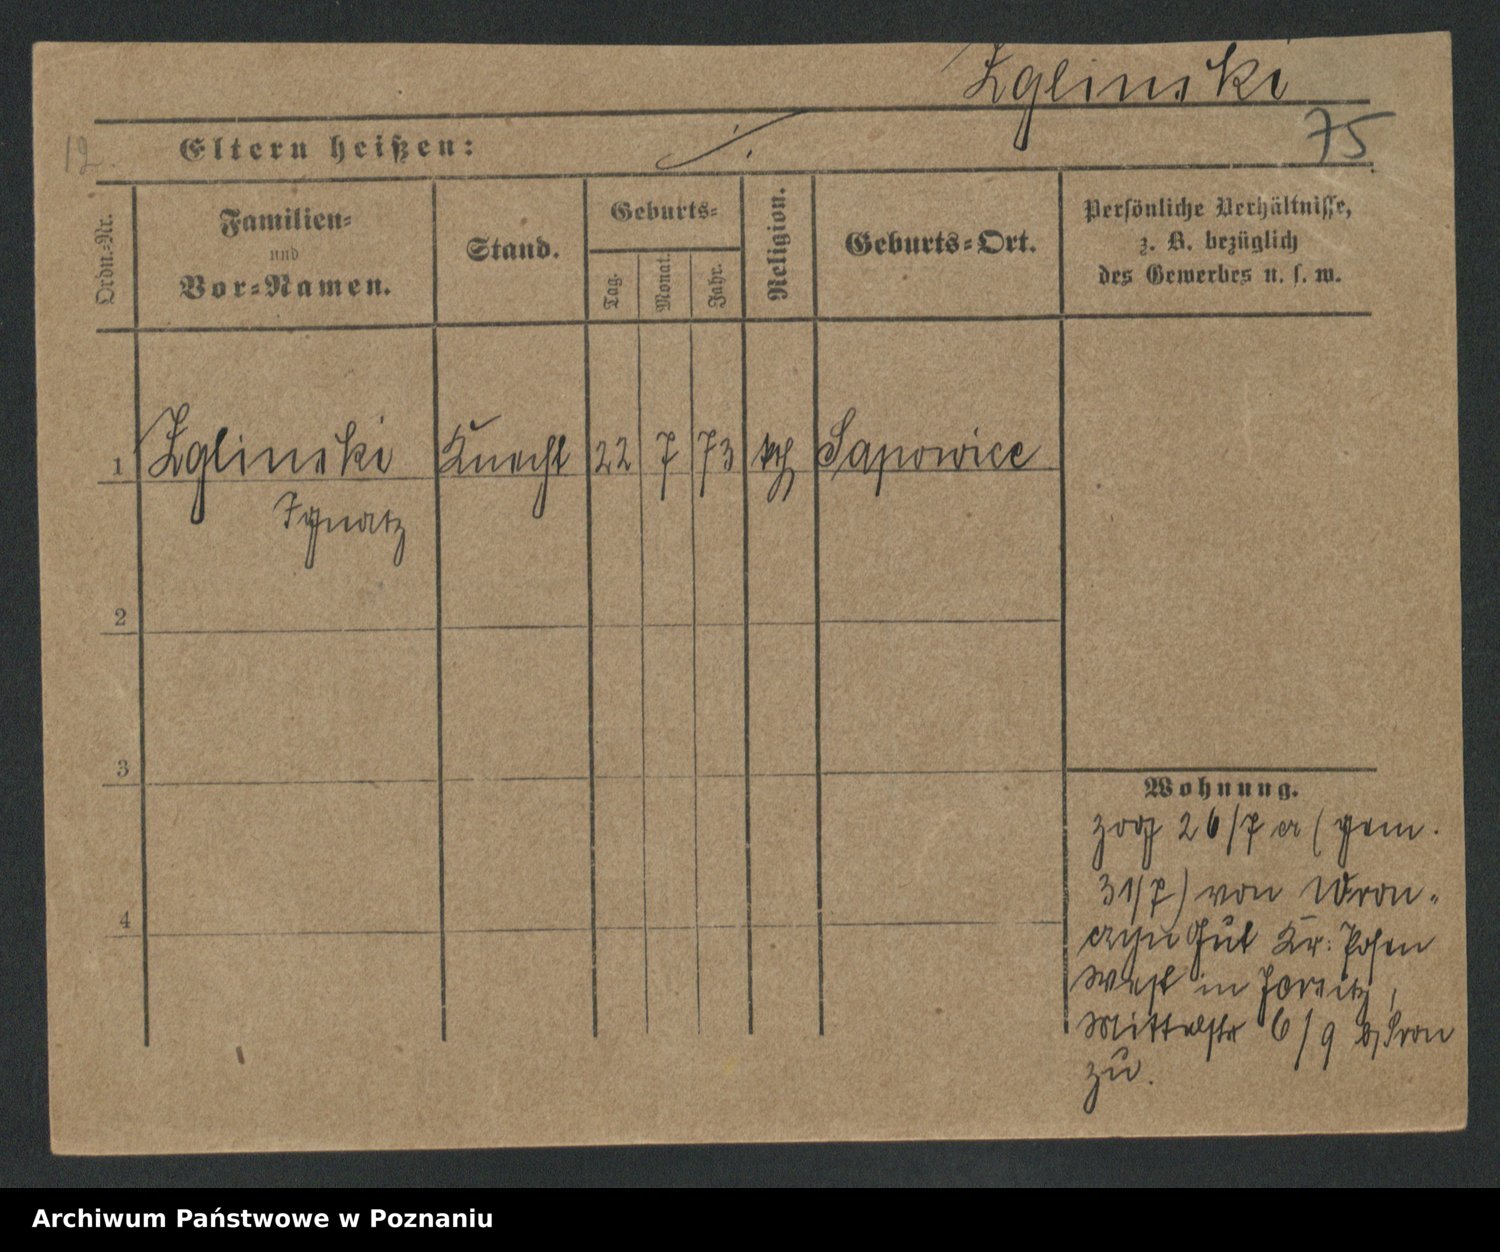 Zglinski
75
12.
Eltern heißen:
Ordn.-Nr.
Familien-
und
Vor-Namen.
Stand.
Geburts-
Tag.
Monat.
Jahr.
Religion.
Geburts-Ort.
Persönliche Verhältnisse,
z. B. bezüglich
des Gewerbes u. s. w.
1 Zglinski Knecht 22 7 73 kth Sapowice
Ignatz
2
3
4
Wohnung.
zog 26/7 cr (gem.
31/7) von Wron-
czyn Gut Kr: Posen
West in Jersitz,
Mittelstr 6/9 b/
zu.
Archiwum Państwowe w Poznaniu